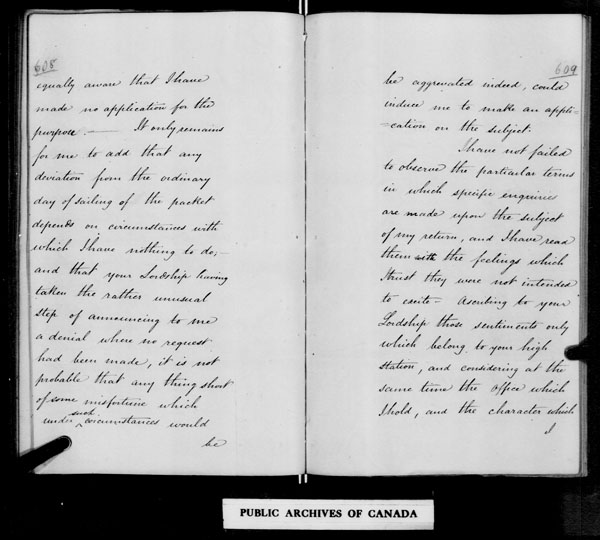 608
equally aware that I have
made no application for the
purpose. — It only remains
for me to add that any
deviation from the ordinary
day of sailing of the packet
depends on circumstances with
which I have nothing to do;—
and that your Lordship having
taken the rather unusual
step of announcing to me
a denial where no request
had been made, it is not
probable that any thing short
of some misfortune which
under such circumstances would
be
609
be aggrevated indeed, could
induce me to make an appli-
-cation on the subject.
I have not failed
to observe the particular terms
in which specific enquiries
are made upon the subject
of my return, and I have read
them with the feelings which
I trust they were not intended
to excite — Ascribing to your
Lordship those sentiments only
which belong to your high
station, and considering at the
same time the office which
I hold, and the character which
I
PUBLIC ARCHIVES OF CANADA